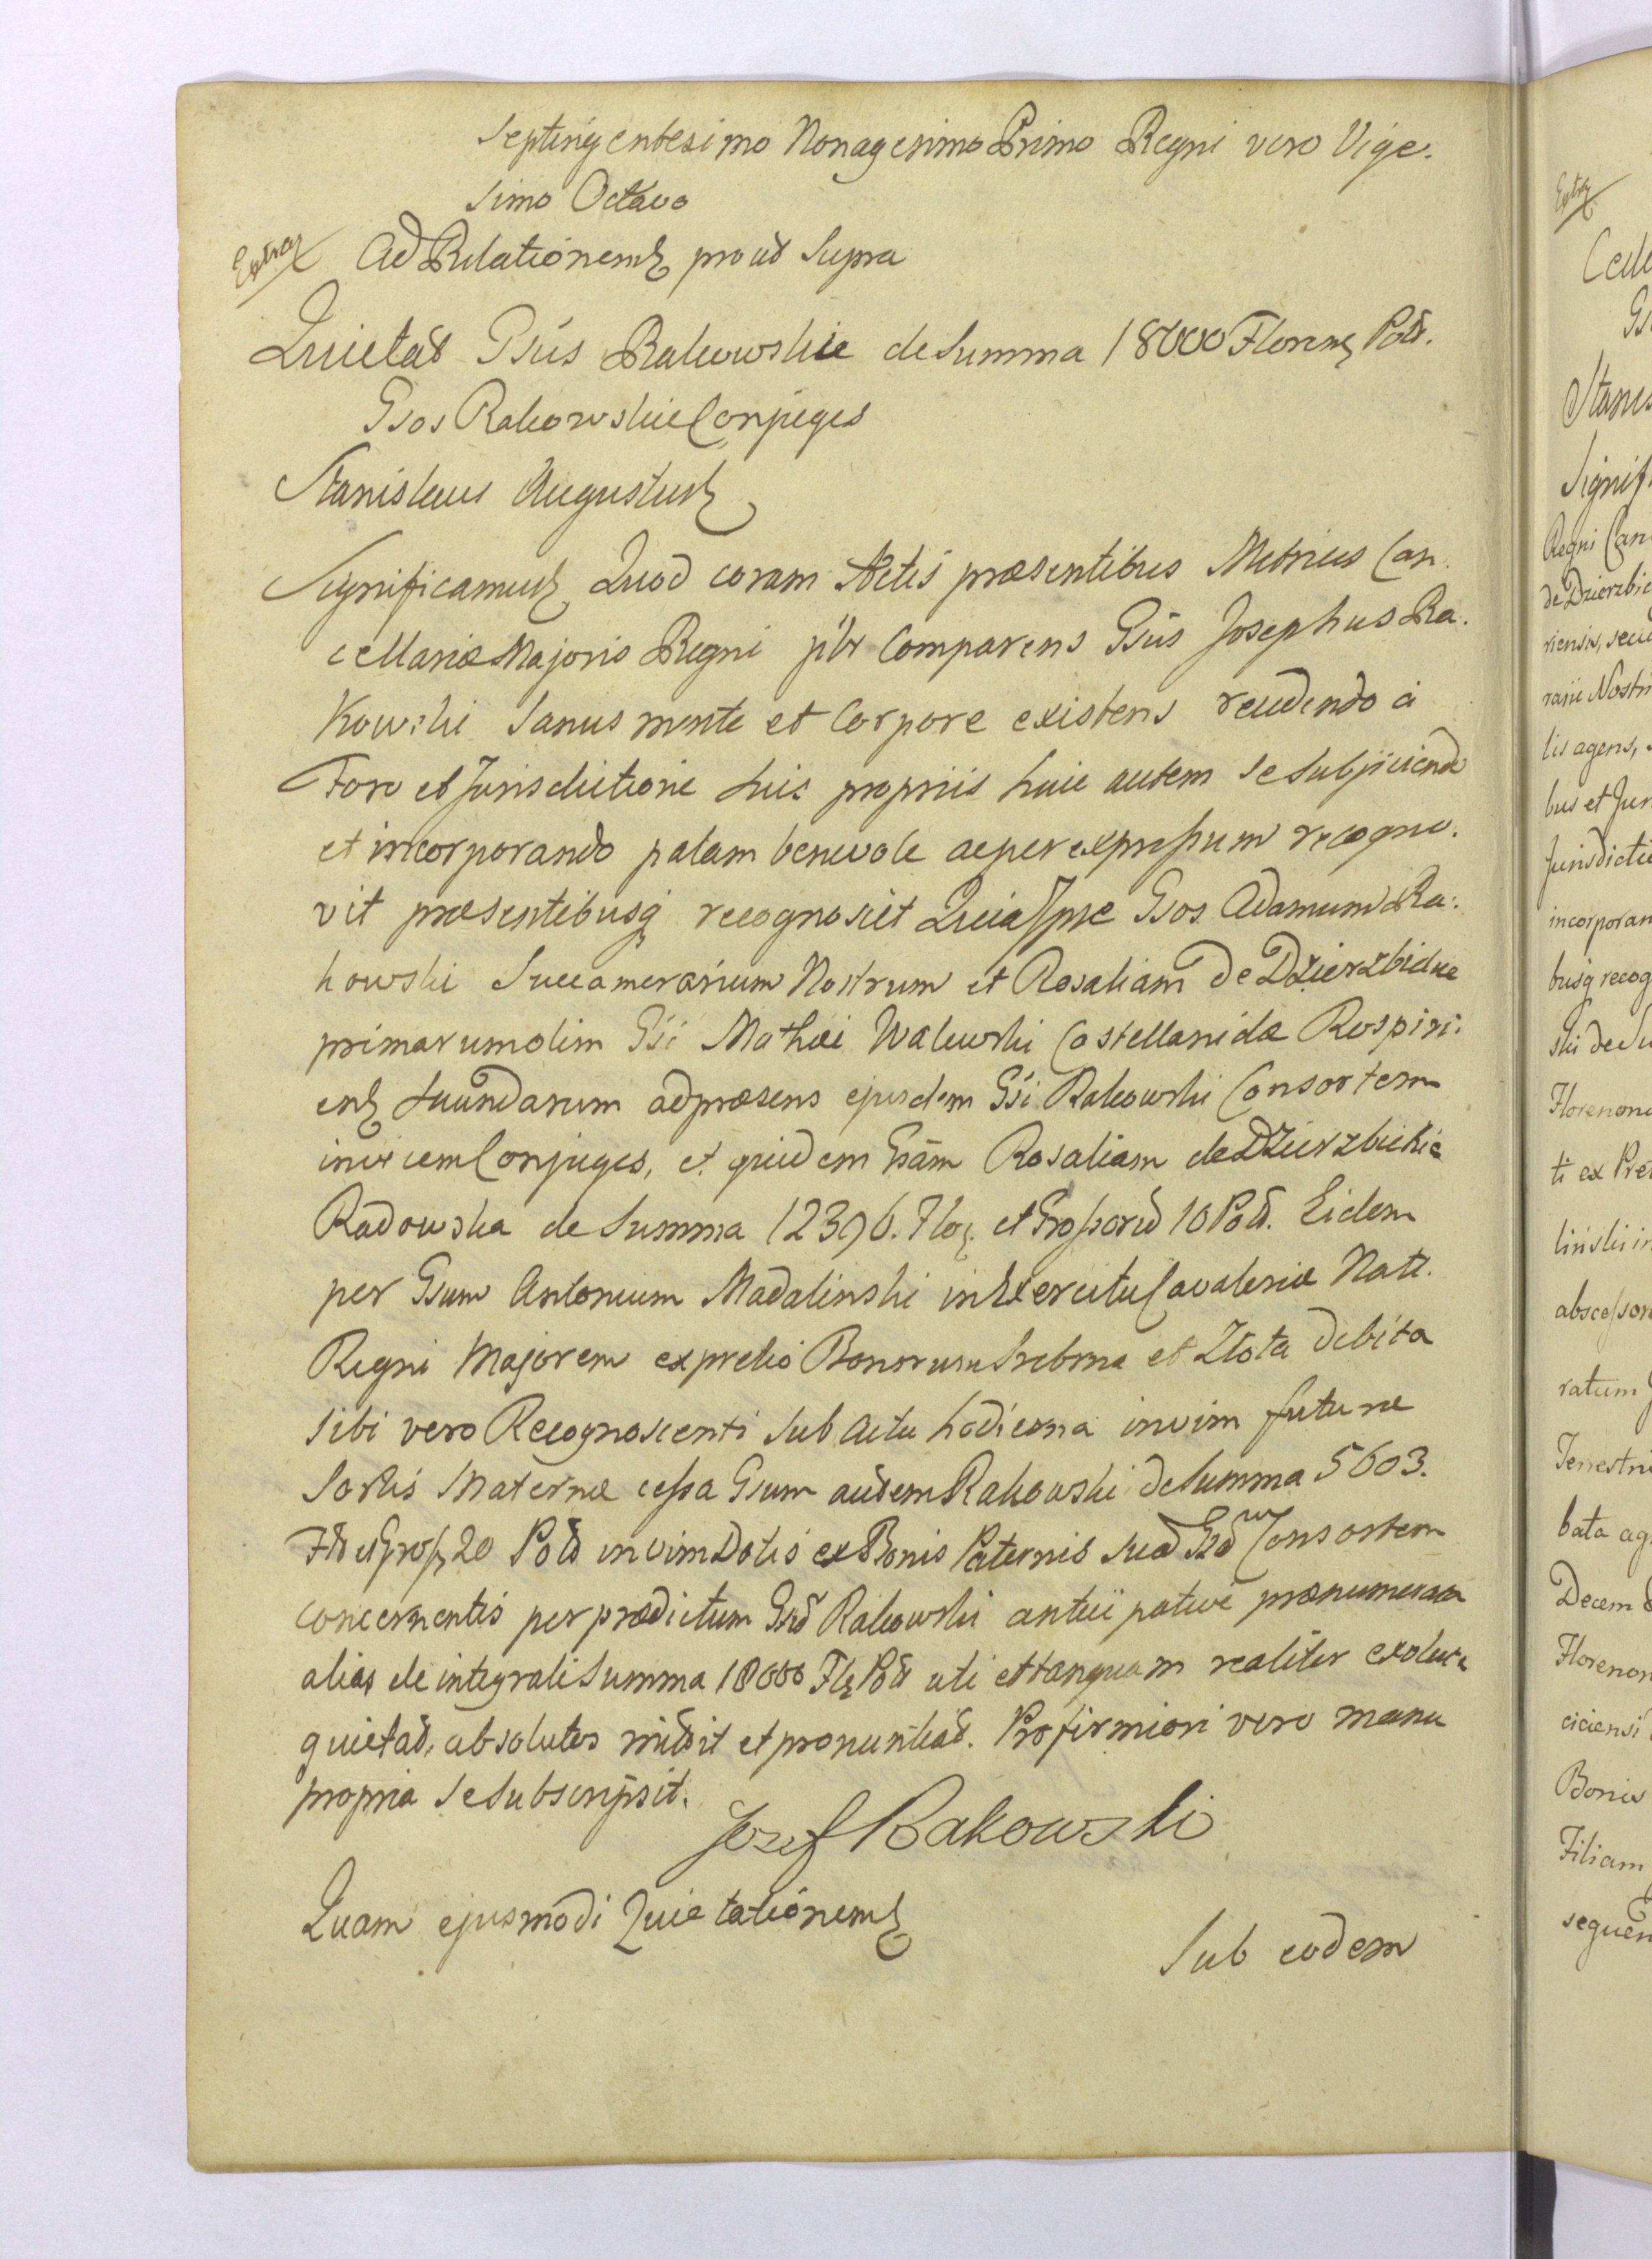 Septingentesimo Nonagesimo Primo Regni vero Vige-
simo Octavo
Extra Ad Relationem prout Supra
Quietat Gsus Rakowskie de Summa 18000 Floren Pol.
Gsos Rakowskie Conjuges
Stanislaus Augustus
Significamus Quod coram Actis præsentibus Metrices Can-
cellariæ Majoris Regni pltr Comparens Gsus Josephus Ra-
kowski Sanus mente et Corpore existens recedendo à
Foro et Jurisdictione suis propriis huic autem se Subjiciendo
et incorporando palam benevole ac per expressum recogno-
vit præsentibusq recognoscit Quia Ipse Gsos Adamum Ra-
kowski Succamerarium Nostrum et Rosaliam de Dzierzbickie
primarum olim Gsi Mathæi Walewski Castellanidæ Rospiri-
en secundarum ad præsens ejusdem Gsi Rakowski Consortem
invicem Conjuges, et quidem Gsam Rosaliam de Dzierzbickie
Radowska de Summa 12396. Flo. et Grossord 10 Pol. Eidem
per Gsum Antonium Madalinski in Exercitu Cavaleriæ Natt.
Regni Majorem ex pretio Bonorum Srebrna et Złota debita
sibi vero Recognoscenti Sub Actu hodierna in vim futuræ
Sortis Maternæ cessa Gsum autem Rakowski de Summa 5603.
Fld et Gross 20 Pol in vim Dotis ex Bonis Paternis suad Gsd Consortem
concernentis per prædictum Gsd Rakowski prænumerata
alias de integrali Summa 18000 Fl Pol uti et tanquam realiter exoluta
quietat, absolutos mittit et pronuntiat. Pro firmiori vero manu
propria se Subscripsit.
Jozef Rakowski
Quam ejusmodi Quietationem
Sub eodem
Extra
Cede
Gs
Stanis
Signif
Regni Can
de Dzierzbic
riensis, secu
rarii Nostri
lis agens,
bus et Jur
Jurisdictio
incorporan
busq recog
ski de Su
Florenon
ti ex Pret
linski in
abscessor
ratum
Terrestri
bata ag
Decem
Florenon
ciciensi
Bonis
Filiam
sequen